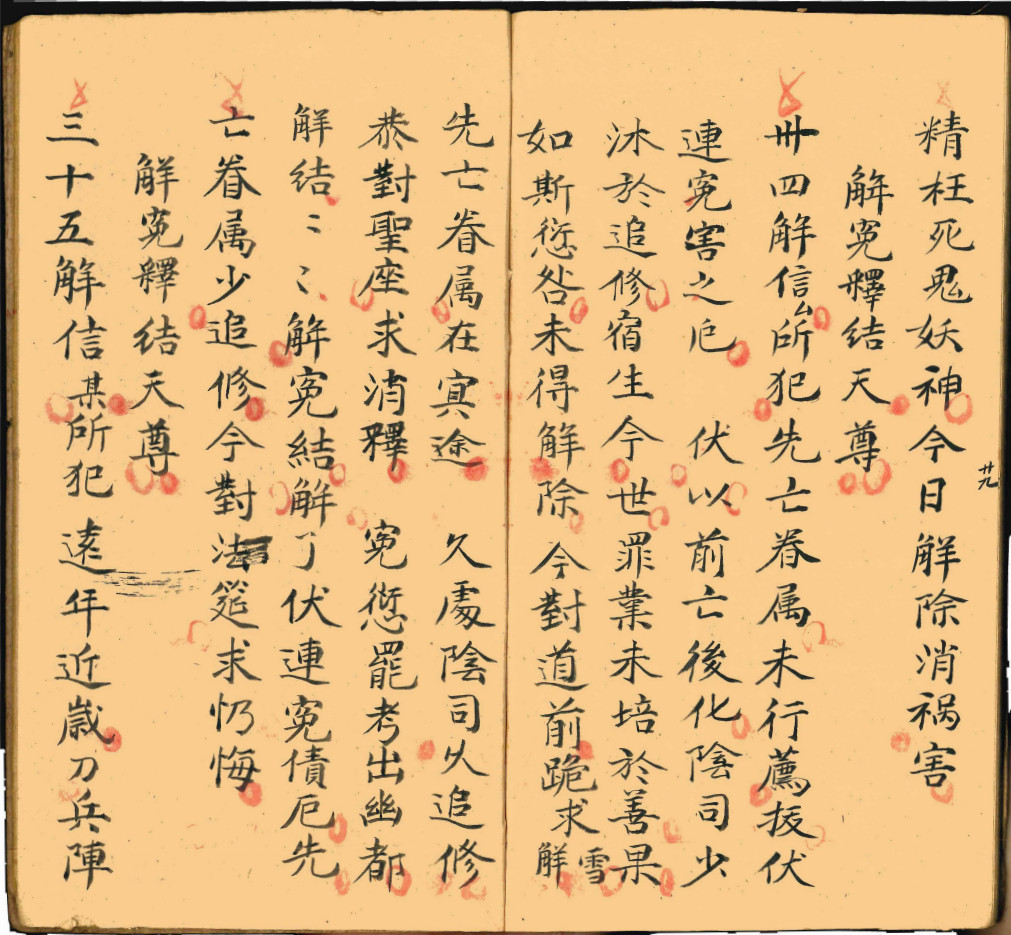 精枉死鬼妖神今日解除消祸害
解寃釋结天尊
卅四解信厶所犯先亡眷属未行薦拔伏
連寃害之厄 伏以前亡後化陰司少
沐於追修宿生今世罪業未培於善果
如斯愆咎未得解除 今對道前跪求
解雪
先亡眷属在寘途 久處陰司久追修
恭對聖座求消釋 寃愆罷考出幽都
解结〻〻解寃结解了伏連寃債厄先
亡眷属少追修今對法筵求忏悔
解寃釋结天尊
三十五解信某所犯遠年近歲刀兵陣
廿九